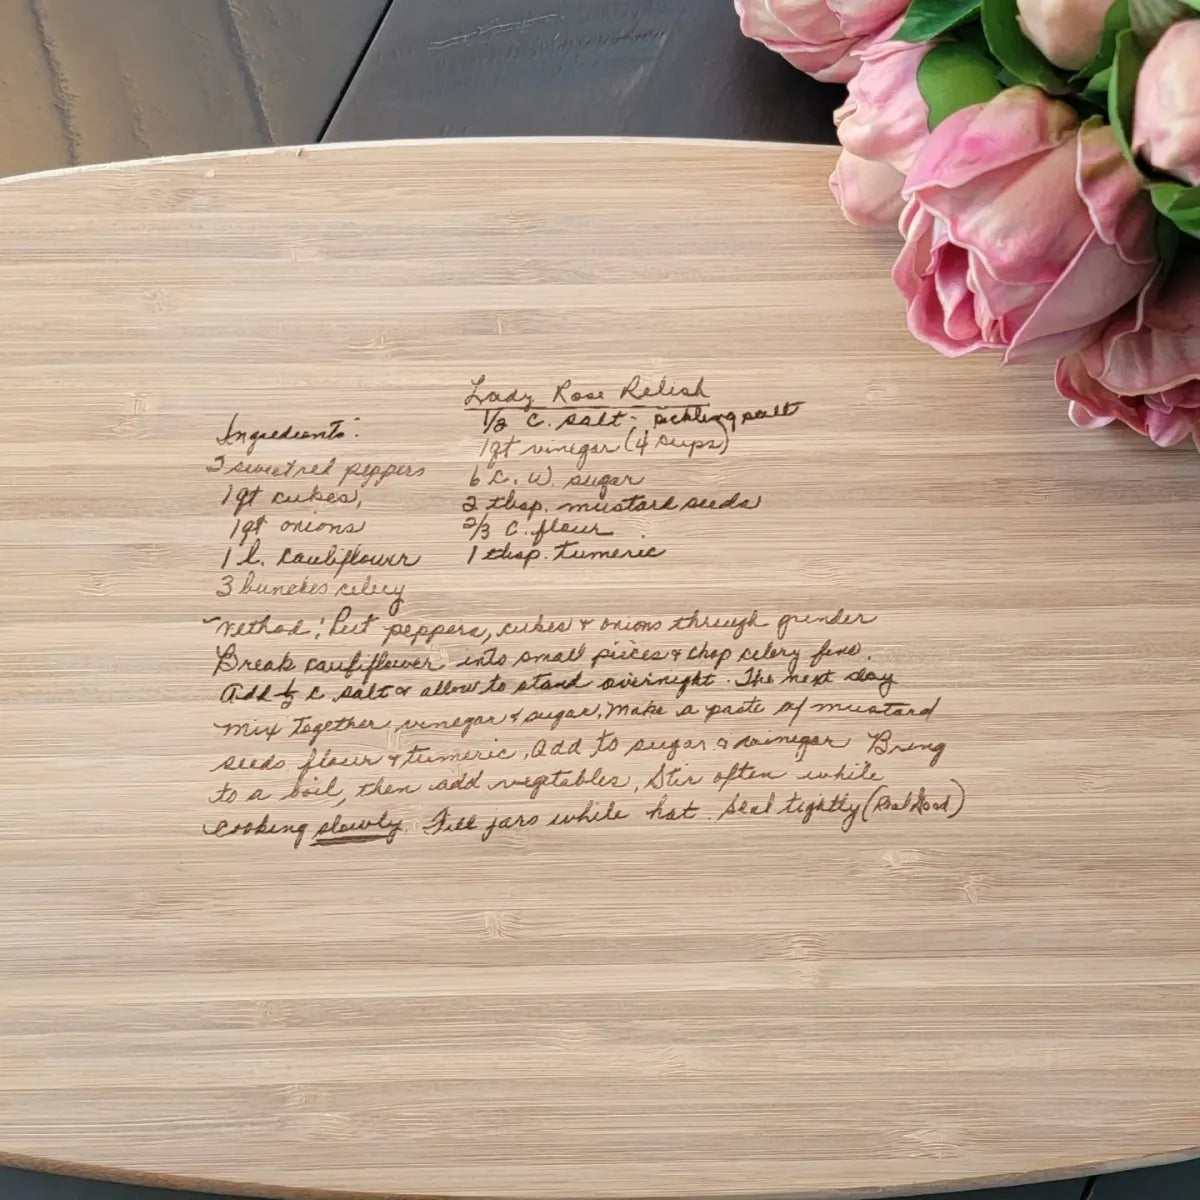 Lady Rose Relish
Ingredients:
sweet red peppers
1qt cukes,
1qt onions
1 l. cauliflower
3 bunches celery
1/2 c. salt - pickling salt
1qt vinegar (4 cups)
6 c. w. sugar
2 tbsp. mustard seeds
2/3 c. flour
1 tbsp. tumeric
Method: Put peppers, cukes & onions through grinder
Break cauliflower into small pieces & chop celery fine.
Add ½ c salt & allow to stand overnight. The next day
mix together vinegar & sugar. Make a paste of mustard
seeds flour & tumeric. Add to sugar & vinegar Bring
to a boil, then add vegetables, Stir often while
cooking slowly. Fill jars while hot. Seal tightly (Real Good)